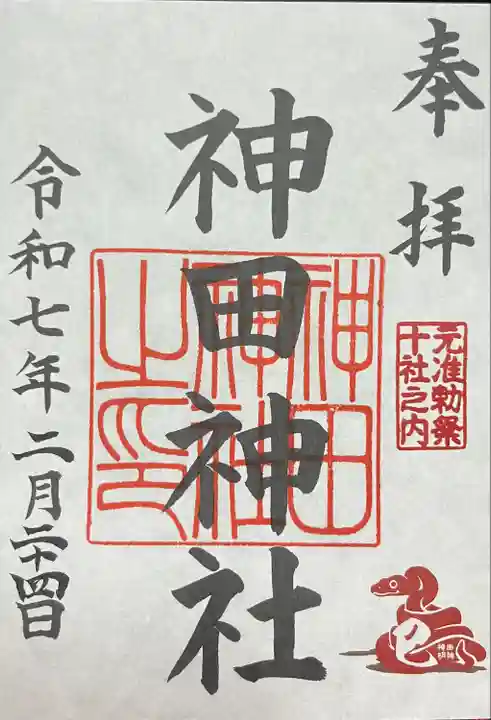 奉拝
元准勅祭
十社之内
神田神社
神田
神社
之印
令和七年二月二十四日